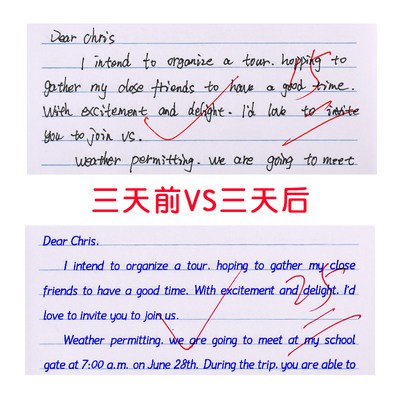 Dear Chris
I intend to organize a tour. hopping to
gather my close friends to have a good time.
With excitement and delight. I'd love to invite
you to join us.
Weather permitting. we are going to meet
15
三天前VS三天后
Dear Chris.
I intend to organize a tour. hoping to gather my close
friends to have a good time. With excitement and delight. I'd
love to invite you to join us.
Weather permitting. we are going to meet at my school
gate at 7:00 a.m. on June 28th. During the trip. you are able to
25